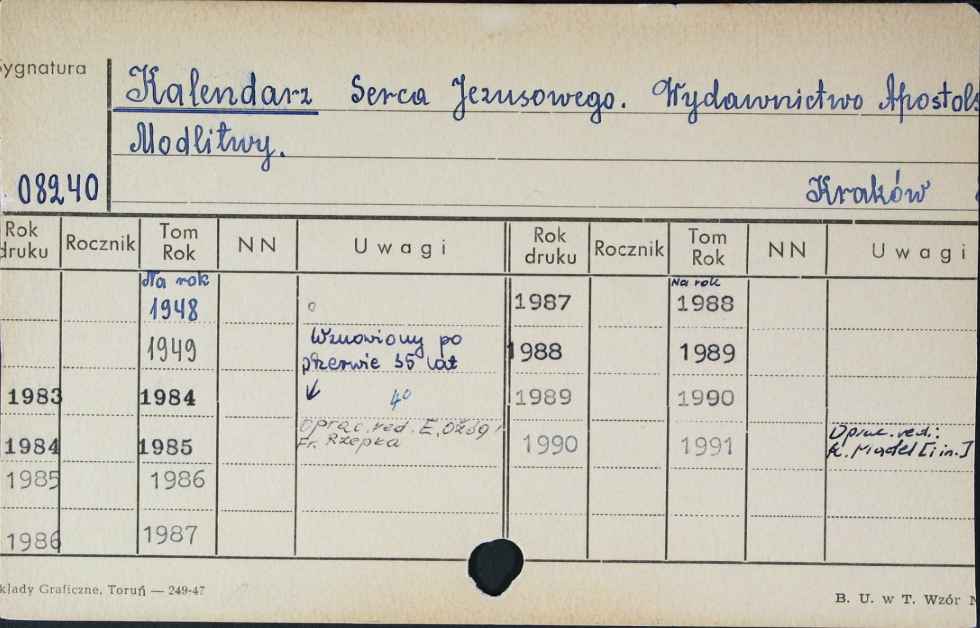 Sygnatura
Kalendarz Serca Jezusowego. Wydawnictwo Apostols
Modlitwy.
08240
Kraków
Rok druku Rocznik Tom Rok NN Uwagi Rok druku Rocznik Tom Rok NN Uwagi
Na rok Na rok
1948 1987 1988
1949 Wznowiony po 1988 1989
przerwie 35 lat
1983 1984 4° 1989 1990
1984 1985 Oprac. red. E. Ożóg i 1990 1991 Oprac. red.:
Fr. Rzepka K. Mądel [i in.]
1985 1986
1986 1987
kłady Graficzne, Toruń — 249-47
B. U. w T. Wzór N